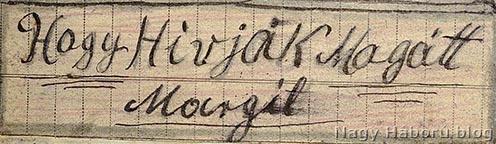 Hogy Hivják Magátt
Margit
Nagy Háború blog